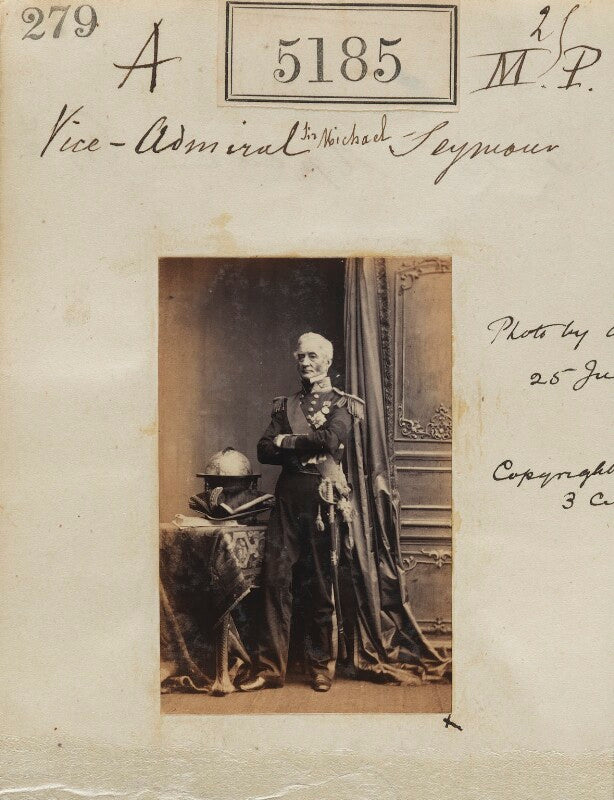 279
A
5185
25
M.P.
Vice-Admiral Sir Michael Seymour
Photo by
25 Ju
Copyright
3